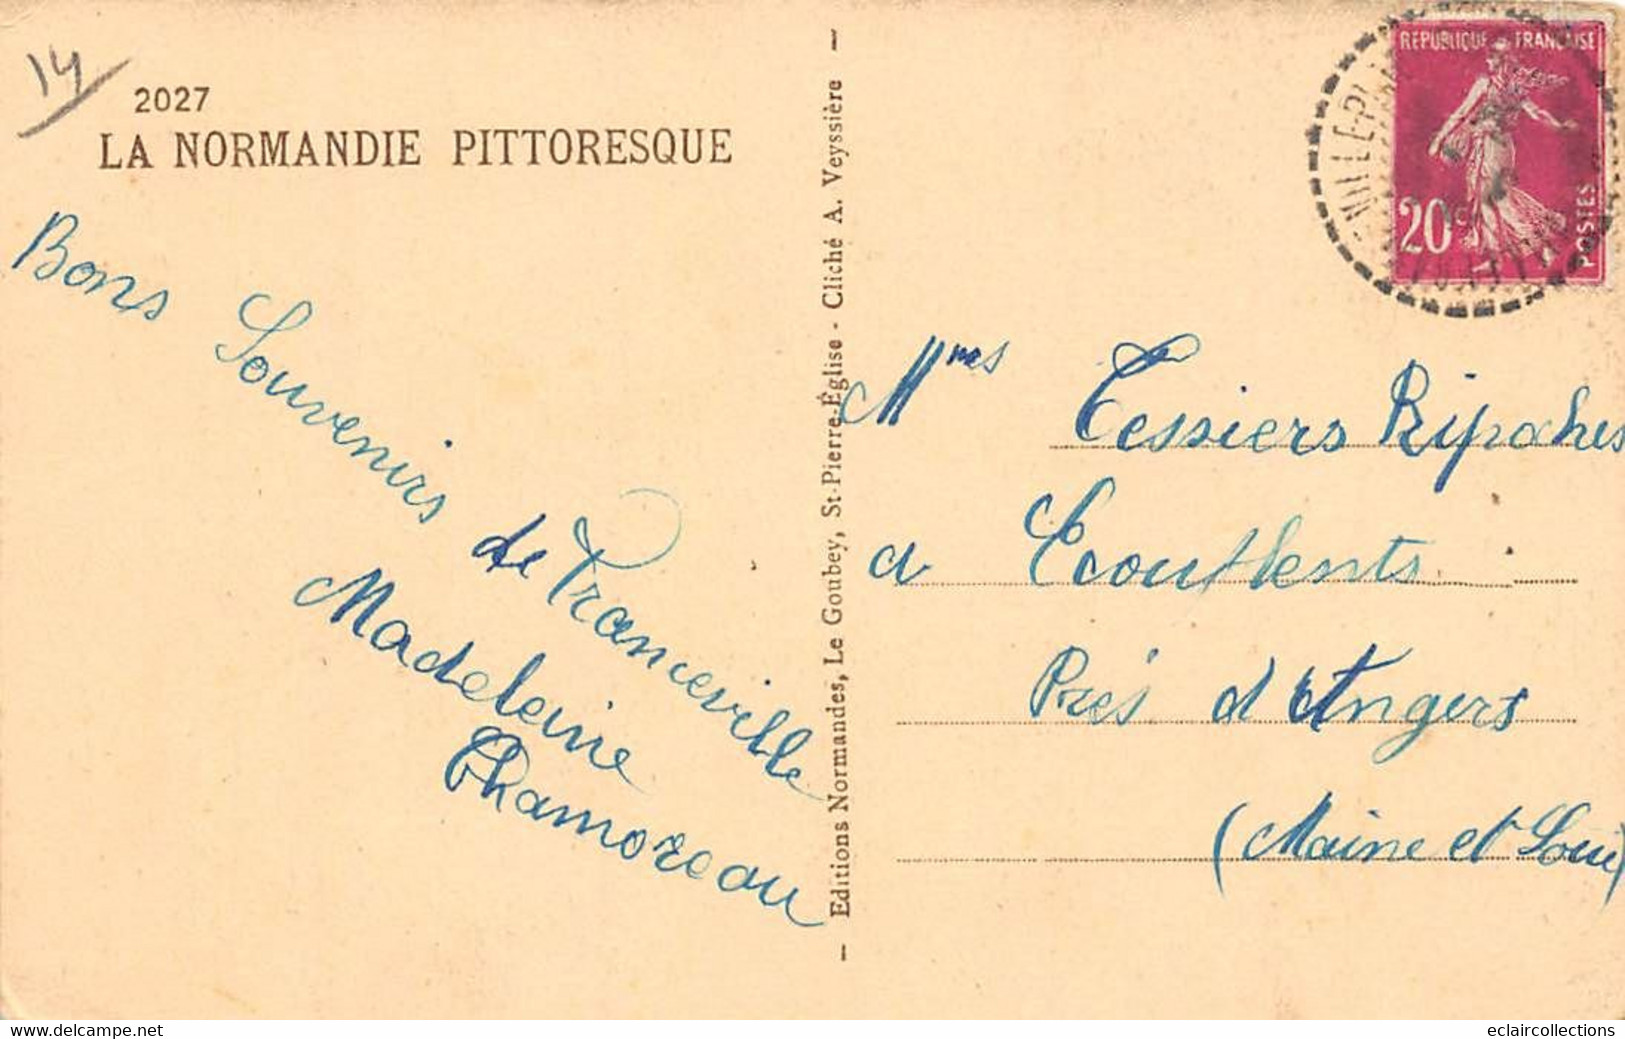 14
2027
LA NORMANDIE PITTORESQUE
Bons Souvenirs
de Franceville
Madeleine
Chamoreau
— Editions Normandes, Le Goubey, St-Pierre-Église - Cliché A. Veyssière —
REPUBLIQUE FRANÇAISE
20c
POSTES
Mmes Tessiers Ripoches
a Ecouflents
Prés d'Angers
(Maine et Loire)
www.delcampe.net
eclaircollections